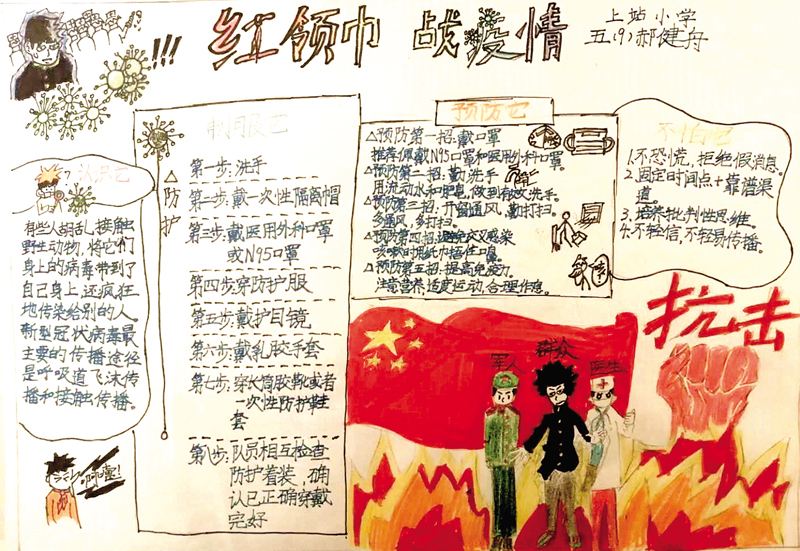 !!!
红领巾 战疫情
上站小学
五(9)郝健舟
认识它
有些人胡乱接触
野生动物,将它们
身上的病毒带到了
自己身上,还疯狂
地传染给别的人。
新型冠状病毒最
主要的传播途径
是呼吸道飞沫传
播和接触传播。
啊嚏!
△防护
制服它
第一步:洗手
第二步:戴一次性隔离帽
第三步:戴医用外科口罩
或N95口罩
第四步:穿防护服
第五步:戴护目镜
第六步:戴乳胶手套
第七步:穿长筒胶靴或者
一次性防护鞋
套
第八步:队员相互检查
防护着装,确
认已正确穿戴
完好
预防它
△预防第一招:戴口罩
推荐佩戴N95口罩和医用外科口罩。
△预防第二招:勤洗手
用流动水和肥皂,做到有效洗手。
△预防第三招:开窗通风,勤打扫。
多通风,多打扫。
△预防第四招:避免交叉感染
咳嗽时用纸巾捂住口鼻。
△预防第五招:提高免疫力。
注意营养,适度运动,合理作息。
不怕它
1.不恐慌,拒绝假消息。
2.固定时间点+靠谱渠
道。
3.培养批判性思维。
4.不轻信,不轻易传播。
抗击
军人 群众 医生